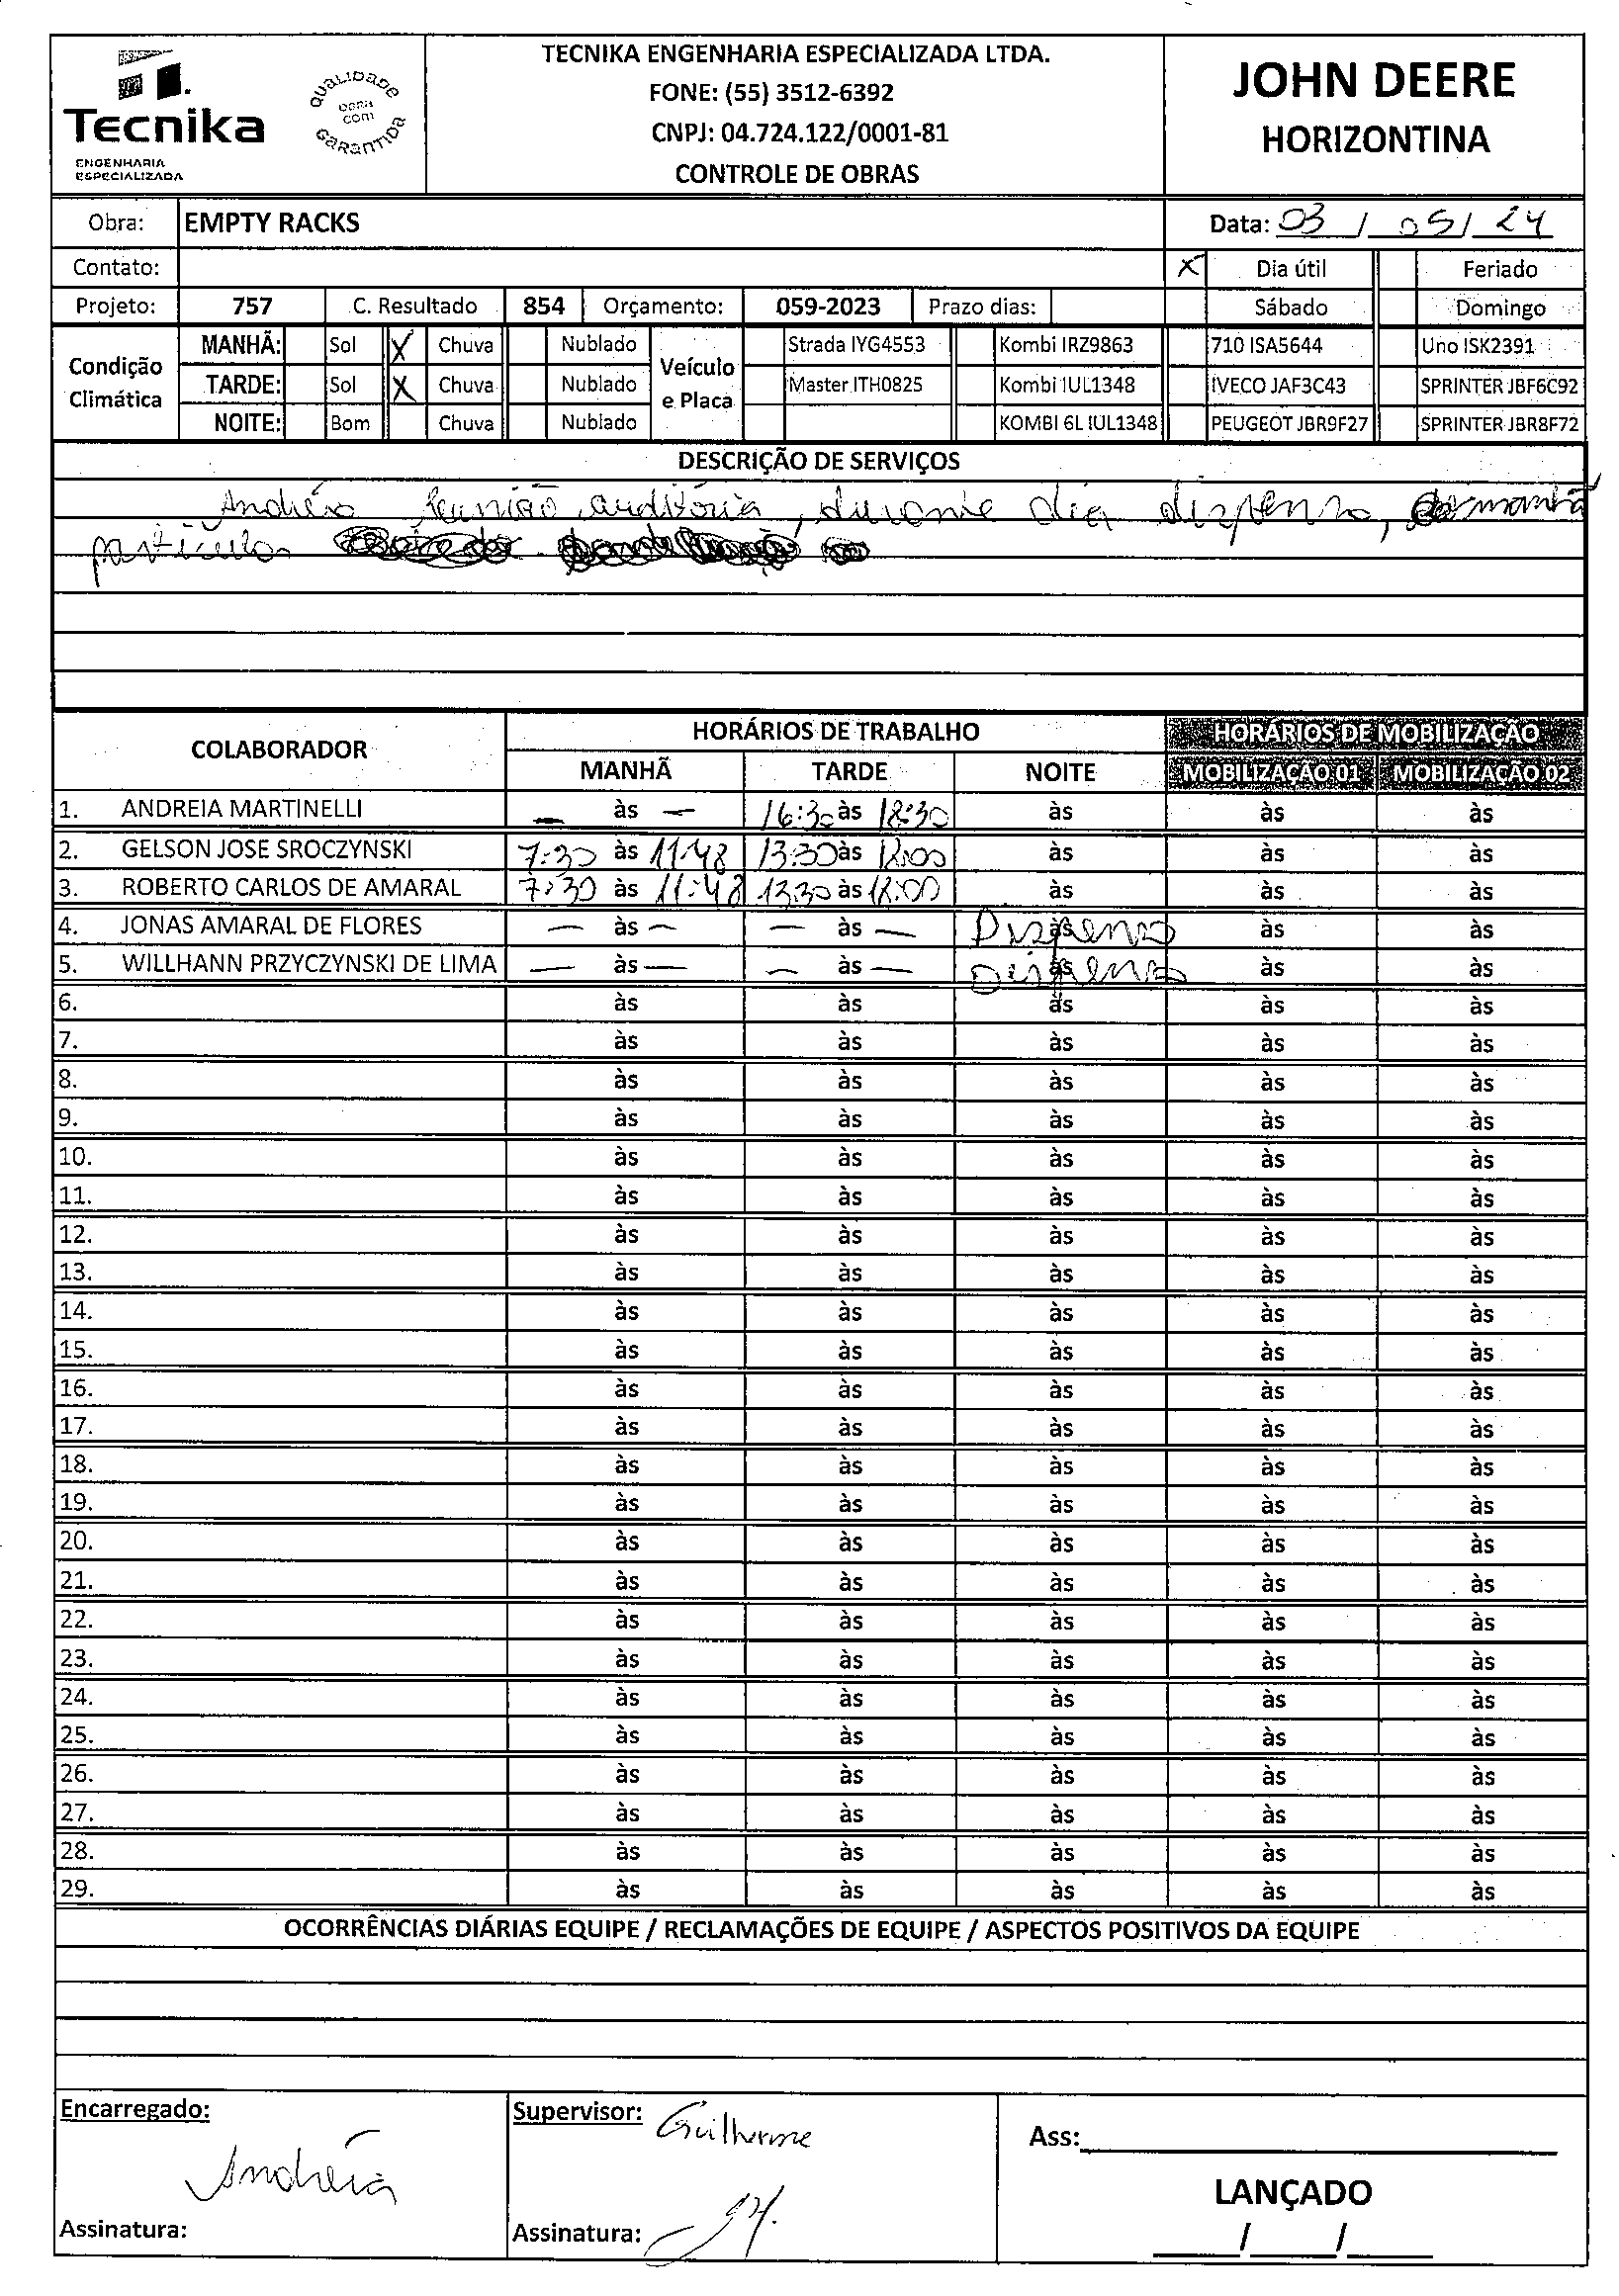 Tecnika
ENGENHARIA
ESPECIALIZADA
QUALIDADE
OBRA
COM
GARANTIDA
TECNIKA ENGENHARIA ESPECIALIZADA LTDA.
FONE: (55) 3512-6392
CNPJ: 04.724.122/0001-81
CONTROLE DE OBRAS
JOHN DEERE
HORIZONTINA
Obra: EMPTY RACKS Data: 03 / 05 / 24
Contato: X Dia útil Feriado
Projeto: 757 C. Resultado 854 Orçamento: 059-2023 Prazo dias: Sábado Domingo
Condição Climática
MANHÃ: Sol X Chuva Nublado
TARDE: Sol X Chuva Nublado
NOITE: Bom Chuva Nublado
Veículo e Placa
Strada IYG4553 Kombi IRZ9863 710 ISA5644 Uno ISK2391
Master ITH0825 Kombi IUL1348 IVECO JAF3C43 SPRINTER JBF6C92
KOMBI 6L IUL1348 PEUGEOT JBR9F27 SPRINTER JBR8F72
DESCRIÇÃO DE SERVIÇOS
Andréia reunião auditória, durante dia dispensa, manhã
particular
COLABORADOR HORÁRIOS DE TRABALHO HORÁRIOS DE MOBILIZAÇÃO
MANHÃ TARDE NOITE MOBILIZAÇÃO 01 MOBILIZAÇÃO 02
1. ANDREIA MARTINELLI — às — 16:30 às 18:30 às às às
2. GELSON JOSE SROCZYNSKI 7:30 às 11:48 13:30 às 18:00 às às às
3. ROBERTO CARLOS DE AMARAL 7:30 às 11:48 13:30 às 18:00 às às às
4. JONAS AMARAL DE FLORES — às — — às — Dispensa às às às
5. WILLHANN PRZYCZYNSKI DE LIMA — às — — às — Dispensa às às às
6. às às às às às
7. às às às às às
8. às às às às às
9. às às às às às
10. às às às às às
11. às às às às às
12. às às às às às
13. às às às às às
14. às às às às às
15. às às às às às
16. às às às às às
17. às às às às às
18. às às às às às
19. às às às às às
20. às às às às às
21. às às às às às
22. às às às às às
23. às às às às às
24. às às às às às
25. às às às às às
26. às às às às às
27. às às às às às
28. às às às às às
29. às às às às às
OCORRÊNCIAS DIÁRIAS EQUIPE / RECLAMAÇÕES DE EQUIPE / ASPECTOS POSITIVOS DA EQUIPE
Encarregado:
Andréia
Assinatura:
Supervisor: Guilherme
Assinatura:
Ass:
LANÇADO
/ /